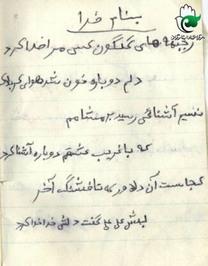 بنام خدا
جبهه های گلگون کسی مرا صدا کرد
دلم دوباره خون شد هوای کربلا کرد
نسیم آشنائی رسید بر مشامم
که با غریب عشقم دوباره آشنا کرد
کجاست آن دلاور که تا فشنگ آخر
لبش علی علی گفت دلش خدا خدا کرد